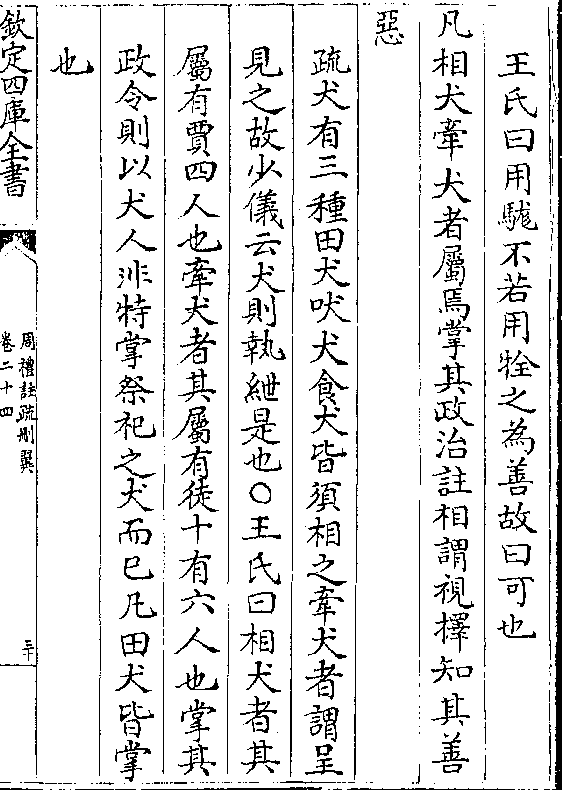 王氏曰用駹不若用牷之為善故曰可也
凡相犬牽犬者屬焉掌其政治註相謂視擇知其善
惡
疏犬有三種田犬吠犬食犬皆須相之牽犬者謂呈
見之故少儀云犬則執緤是也○王氏曰相犬者其
屬有賈四人也牽犬者其屬有徒十有六人也掌其
政令則以犬人非特掌祭祀之犬而已凡田犬皆掌
也
欽定四庫全書
周禮註疏刪翼
卷二十四
三十